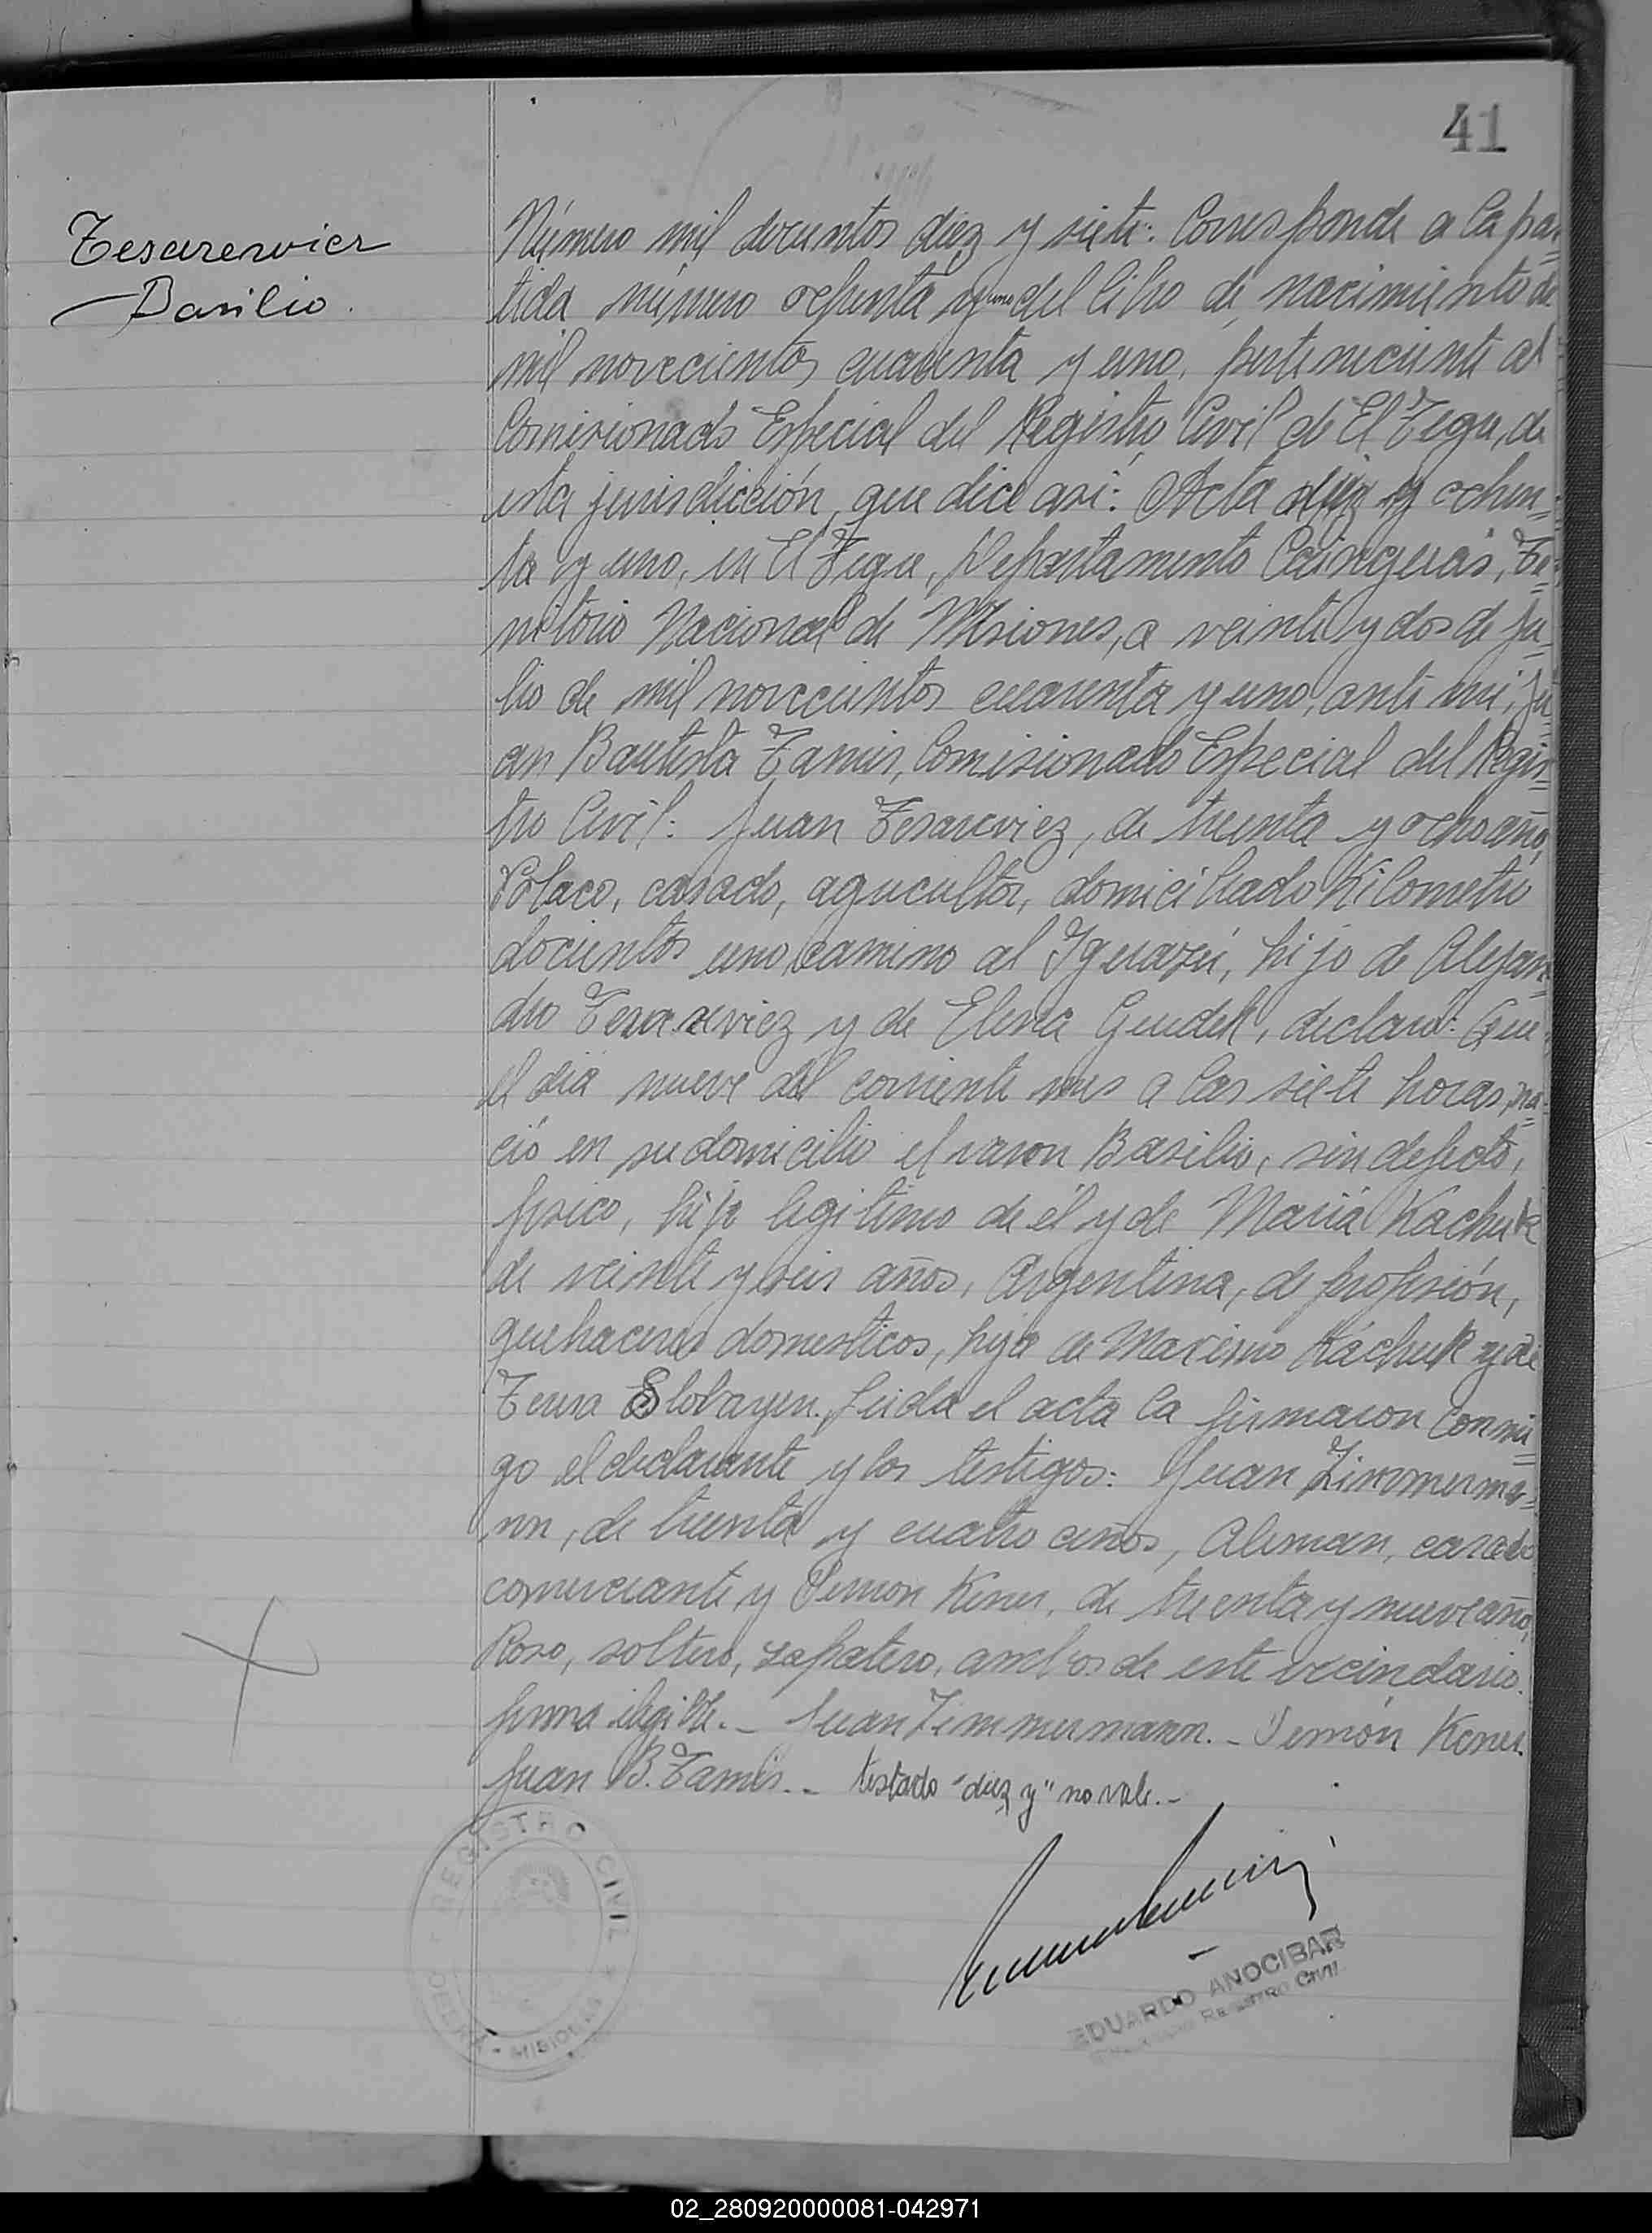 41
Tesarewicz
Basilio.
Número mil docuntos diez y siete: Corresponde a la par=
tida número ochenta y uno del libro de nacimiento de
mil novecientos cuarenta y uno, perteneciente al
Comisionado Especial del Registro Civil de El Tegu, de
esta jurisdicción, que dice asi: Acta diez y ochen=
ta y uno, en El Tegu, Departamento Cainguas, Te=
rritorio Nacional de Misiones, a veinte y dos de Ju=
lio de mil novecientos cuarenta y uno, ante mi, Ju=
an Bautista Tamis, Comisionado Especial del Regis=
tro Civil: Juan Tesareviez, de treinta y ocho años,
Polaco, casado, agricultor, domiciliado Kilometro
docientos uno, camino al Iguazú, hijo de Alejan=
dro Tesareviez y de Elena Gudek, declaró: Que
el dia nueve del corriente mes a las siete horas, na=
ció en su domicilio el varon Basilio, sin defecto,
fisico, hijo legitimo de él y de Maria Kachuk
de veinte y seis años, Argentina, de profesión,
quehaceres domesticos, hija de Maximo Kachuk y de
Slobayen. Leida el acta la firmaron conmi=
go el declarante y los testigos: Juan Zimmerma=
nn, de treinta y cuatro años, Aleman, casado
comerciante y Semon Kener, de treinta y nueve años,
Roso, soltero, zapatero, ambos de este vecindario.
firma ilegible.- Juan Zimmermann.- Semón Kener.
Juan B. Tamis.- testado "diez y" no vale.-
REGISTRO CIVIL
OBERÁ - MISIONES
EDUARDO ANOCIBAR
REGISTRO CIVIL
02_280920000081-042971